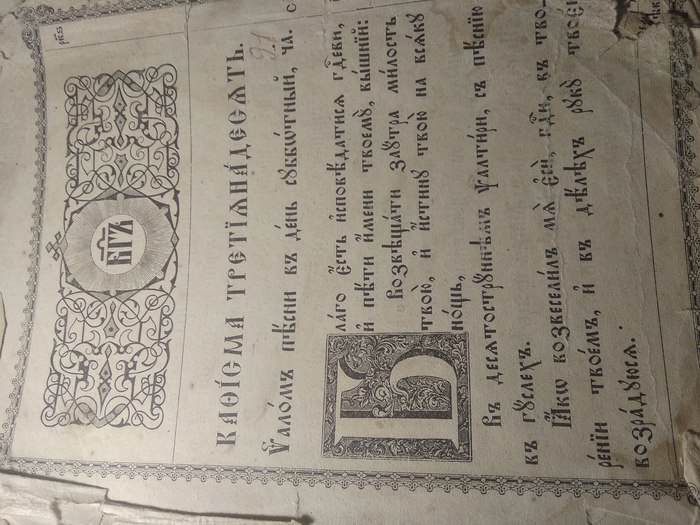 КАѲІ́СМА ТРЕТІѦНА́ДЕСѦТЬ.
91
Ѱало́мъ пѣ́сни въ де́нь сꙋббѡ́тный, ча. с
Бла́го є҆́сть и҆сповѣ́датисѧ гдⷭ҇еви,
и҆ пѣ́ти и҆́мени твоемꙋ̀, вы́шнїй:
возвѣща́ти заꙋ́тра ми́лость
твою̀, и҆ и҆́стинꙋ твою̀ на всѧ́кꙋ
но́щь,
Въ десѧтострꙋ́ннѣмъ ѱалти́ри, съ пѣ́снїю
въ гꙋ́слехъ.
Ꙗ҆́кѡ возвесели́лъ мѧ̀ є҆сѝ, гдⷭ҇и, въ тво-
ре́нїи твое́мъ, и҆ въ дѣ́лѣхъ рꙋкꙋ̀ твоє́ю
возра́дꙋюсѧ.